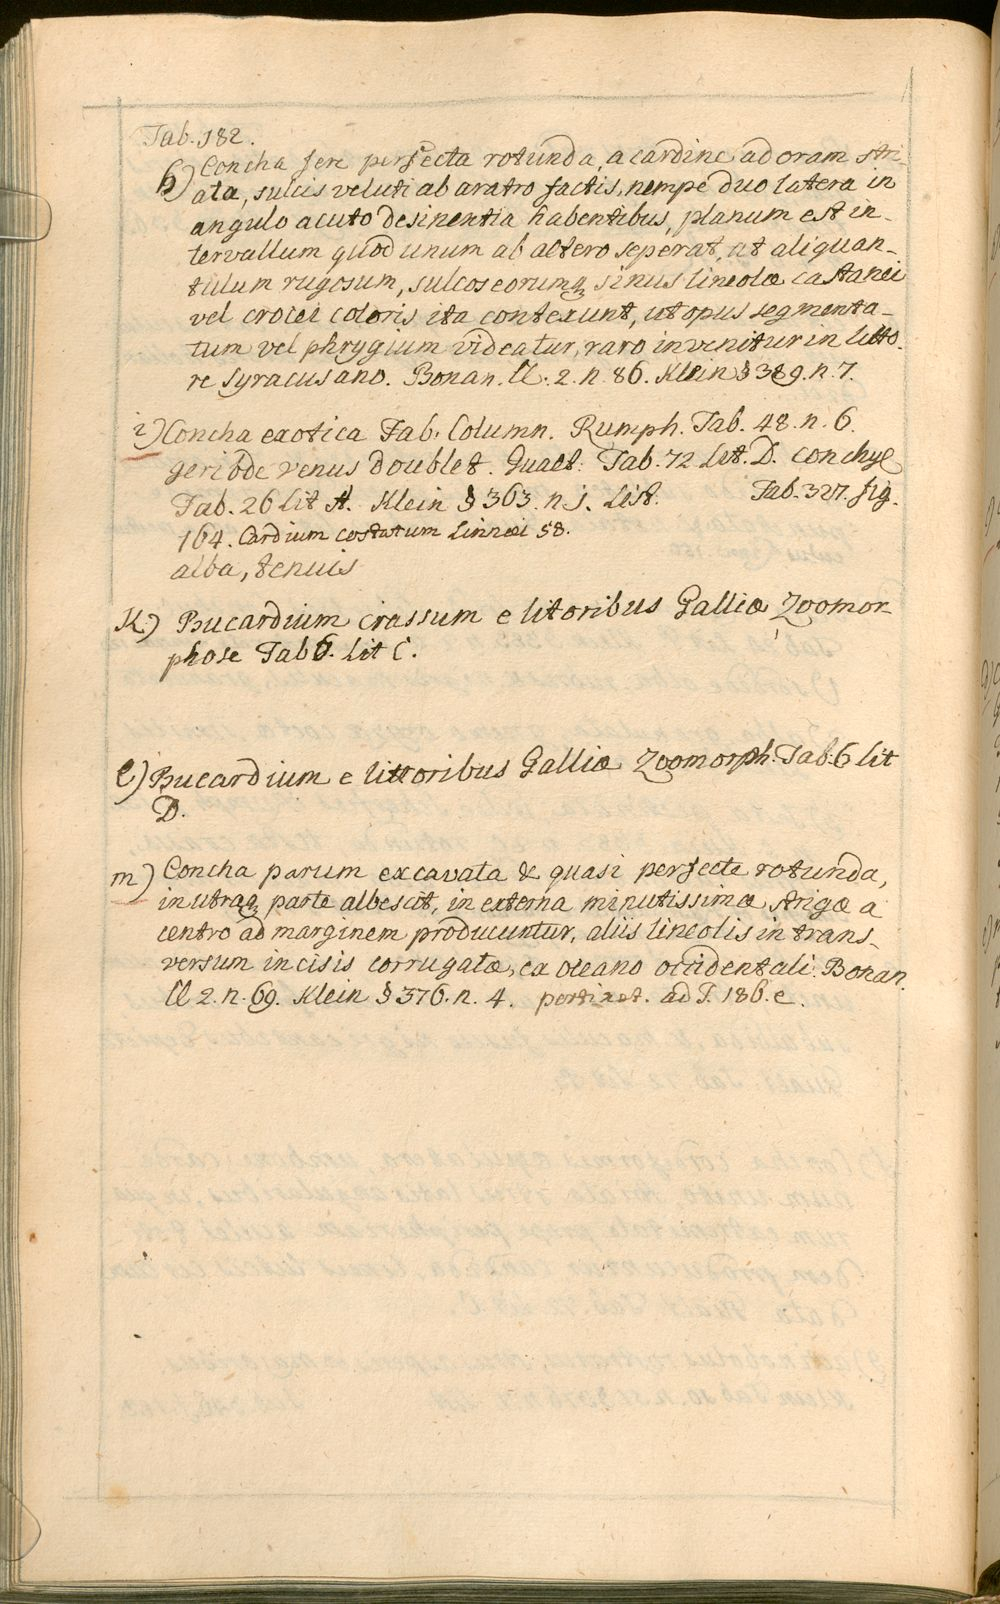 Tab. 182.
h) Concha fere perfecta rotunda, a cardine ad oram stri-
ata, sulcis veluti ab aratro factis, nempe duo latera in
angulo acuto desinentia habentibus, planum est in-
tervallum quod unum ab altero seperat, at aliquan-
tulum rugosum, sulcos eorumq sinus lineolæ castanei
vel crocei coloris ita contexunt, ut opus segmenta-
tum vel phrygium videatur, raro invenitur in litto-
re Syracusano. Bonan. Cl. 2. n. 86. Klein § 389. n. 7.
i) Concha exotica Fab. Column. Rumph. Tab. 48. n. 6.
geribde venus doublet. Gualt. Tab. 72 Lit. D. conchyl
Tab. 26 Lit A. Klein § 363. n. 1. List. Tab. 327. fig.
164. Cardium costatum Linnæi 58.
alba, tenuis
K.) Bucardium crassum e litoribus Galliæ Zoomor
phose Tab 6. Lit C.
l) Bucardium e littoribus Galliæ Zoomorph. Tab. 6 lit
D.
m) Concha parum excavata & quasi perfecte rotunda,
in utraq parte albescit, in externa minutissimæ strigæ a
centro ad marginem producuntur, aliis lineolis in trans-
versum incisis corrugatæ, ex oceano occidentali. Bonan.
Cl 2. n. 69. Klein § 376. n. 4. pertinet. ad T. 186. e.